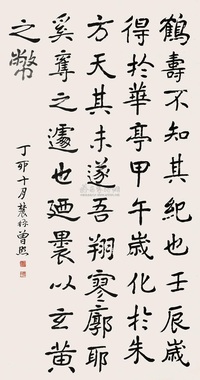 鶴壽不知其紀也壬辰歲
得於華亭甲午歲化於朱
方天其未遂吾翔寥廓耶
奚奪之遽也廼裹以玄黃
之幣
丁卯十月農髯曾熙